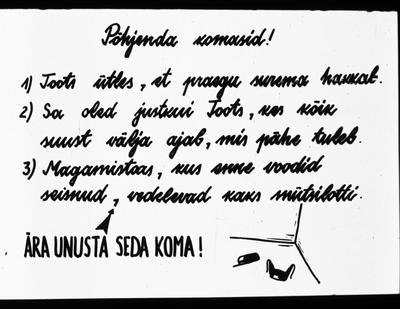 Põhjenda komasid!
1) Toots ütles, et praegu surema hakkab.
2) Sa oled justkui Toots, kes kõik
suust välja ajab, mis pähe tuleb.
3) Magamistoas, kus enne voodid
seisnud, vedelevad kaks mütsilotti.
ÄRA UNUSTA SEDA KOMA!